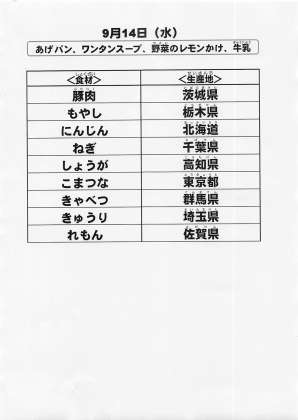 9月14日（水）
あげパン、ワンタンスープ、野菜のレモンかけ、牛乳
＜食材＞ ＜生産地＞
豚肉 茨城県
もやし 栃木県
にんじん 北海道
ねぎ 千葉県
しょうが 高知県
こまつな 東京都
きゃべつ 群馬県
きゅうり 埼玉県
れもん 佐賀県